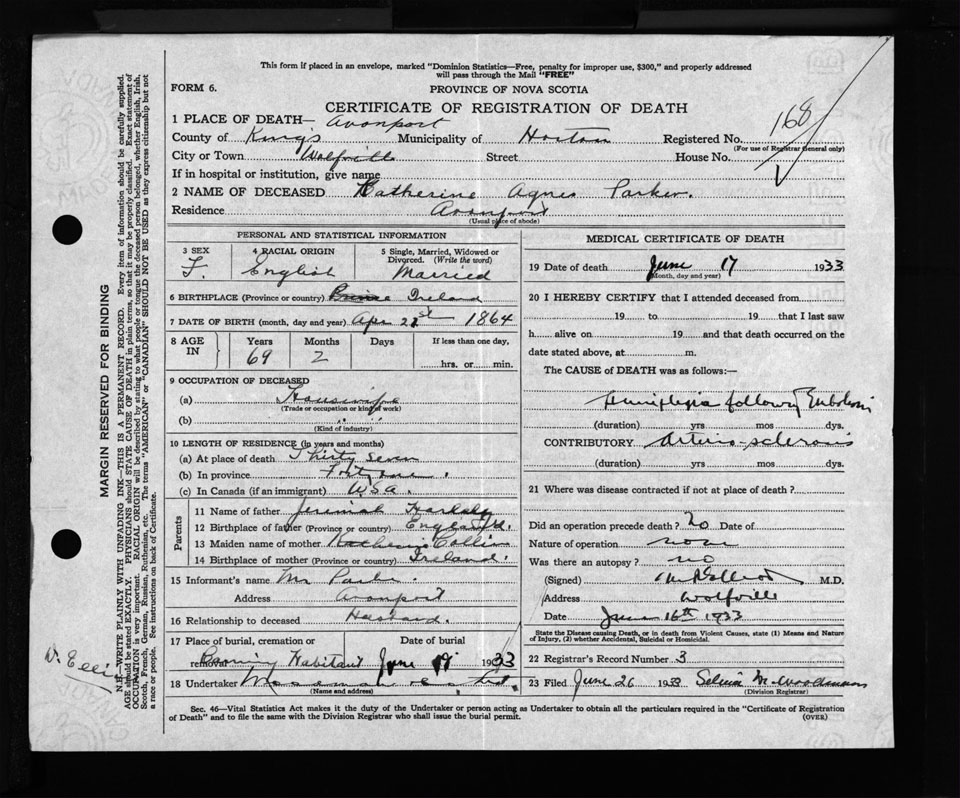 This form if placed in an envelope, marked "Dominion Statistics—Free, penalty for improper use, $300," and properly addressed
will pass through the Mail "FREE"
FORM 6.
PROVINCE OF NOVA SCOTIA
CERTIFICATE OF REGISTRATION OF DEATH
1 PLACE OF DEATH— Avonport
County of King's Municipality of Horton Registered No. 168
(For use of Registrar General only)
City or Town Wolfville Street House No.
If in hospital or institution, give name
2 NAME OF DECEASED Katherine Agnes Parker.
Residence Avonport
(Usual place of abode)
PERSONAL AND STATISTICAL INFORMATION
3 SEX 4 RACIAL ORIGIN 5 Single, Married, Widowed or Divorced. (Write the word)
F. English Married
6 BIRTHPLACE (Province or country) Ireland
7 DATE OF BIRTH (month, day and year) Apr 21st 1864
8 AGE IN Years Months Days If less than one day,
69 2 hrs. or min.
9 OCCUPATION OF DECEASED
(a) Housewife
(Trade or occupation or kind of work)
(b) " "
(Kind of industry)
10 LENGTH OF RESIDENCE (in years and months)
(a) At place of death Thirty Seven
(b) In province Forty one.
(c) In Canada (if an immigrant) U.S.A.
Parents
11 Name of father Jerimiah
12 Birthplace of father (Province or country) England.
13 Maiden name of mother Katherine Collins
14 Birthplace of mother (Province or country) Ireland.
15 Informant's name Mr Parker.
Address Avonport
16 Relationship to deceased Husband.
17 Place of burial, cremation or removal Date of burial
Habitant June 19 1933
18 Undertaker
(Name and address)
MEDICAL CERTIFICATE OF DEATH
19 Date of death June 17 1933
(Month, day and year)
20 I HEREBY CERTIFY that I attended deceased from
19 to 19 that I last saw
h alive on 19 and that death occurred on the
date stated above, at m.
The CAUSE of DEATH was as follows:—
Hemiplegia following Embolism
(duration) yrs mos dys.
CONTRIBUTORY Arterio sclerosis
(duration) yrs mos dys.
21 Where was disease contracted if not at place of death?
Did an operation precede death? No Date of
Nature of operation none
Was there an autopsy? no
(Signed) M.D.
Address Wolfville
Date June 16th 1933
State the Disease causing Death, or in death from Violent Causes, state (1) Means and Nature
of Injury, (2) whether Accidental, Suicidal or Homicidal.
22 Registrar's Record Number 3
23 Filed June 26 1933 Selvin M.
(Division Registrar)
Sec. 46—Vital Statistics Act makes it the duty of the Undertaker or person acting as Undertaker to obtain all the particulars required in the "Certificate of Registration
of Death" and to file the same with the Division Registrar who shall issue the burial permit.
(OVER)
MARGIN RESERVED FOR BINDING
N.B.—WRITE PLAINLY WITH UNFADING INK—THIS IS A PERMANENT RECORD. Every item of information should be carefully supplied.
AGE should be stated EXACTLY. PHYSICIANS should STATE CAUSE OF DEATH in plain terms, so that it may be properly classified. Exact statement of
OCCUPATION is very important. RACIAL ORIGIN will be described by stating to what people or tongue the deceased person belonged, whether English, Irish,
Scotch, French, German, Russian, Ruthenian, etc. The terms "AMERICAN" or "CANADIAN" SHOULD NOT BE USED as they express citizenship but not
a race or people. See instructions on back of Certificate.